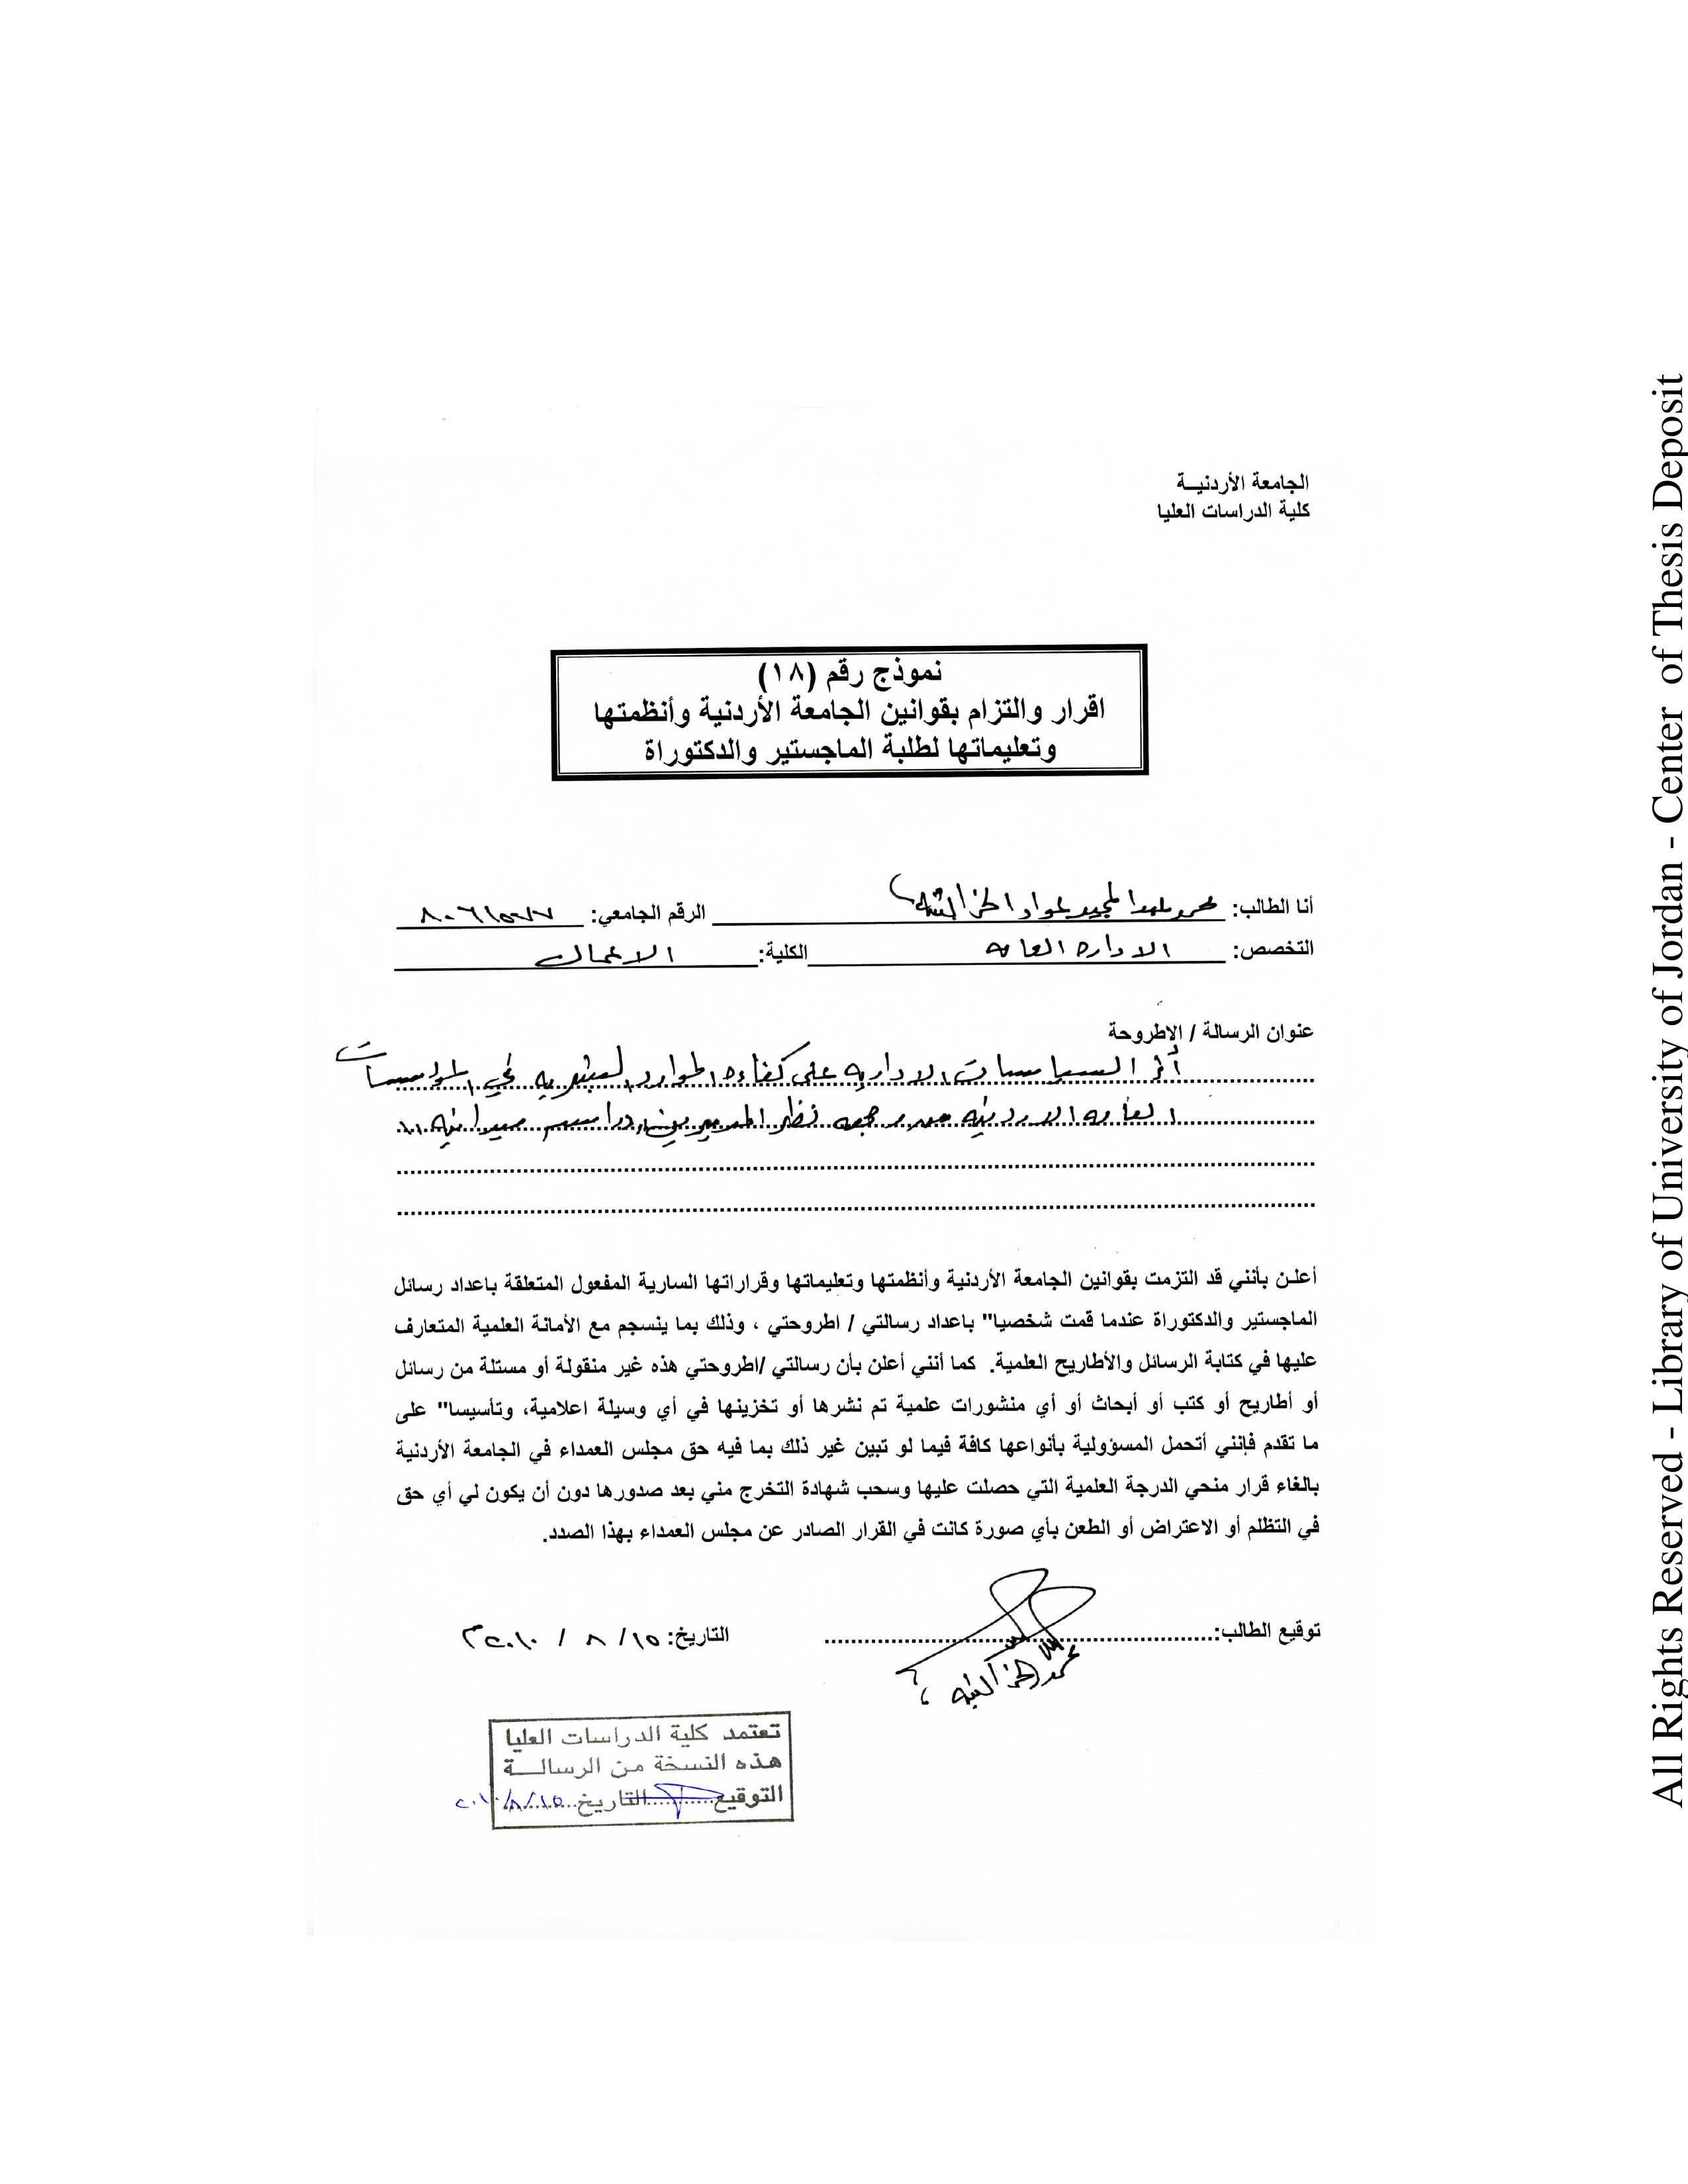 الجامعة الأردنيــة
كلية الدراسات العليا
نموذج رقم (١٨)
اقرار والتزام بقوانين الجامعة الأردنية وأنظمتها
وتعليماتها لطلبة الماجستير والدكتوراة
أنا الطالب: محمد عبدالمجيد عواد الخزالنه الرقم الجامعي:
التخصص: الاداره العامه الكلية: الاعمال
عنوان الرسالة / الاطروحة
أثر السياسات الاداريه على كفاءه الموارد البشريه في المؤسسات
العامه الاردنيه من وجهه نظر المديرين, دراسه ميدانيه
أعلـن بأنني قد التزمت بقوانين الجامعة الأردنية وأنظمتها وتعليماتها وقراراتها السارية المفعول المتعلقة باعداد رسائل
الماجستير والدكتوراة عندما قمت شخصيا" باعداد رسالتي / اطروحتي ، وذلك بما ينسجم مع الأمانة العلمية المتعارف
عليها في كتابة الرسائل والأطاريح العلمية. كما أنني أعلن بأن رسالتي /اطروحتي هذه غير منقولة أو مستلة من رسائل
أو أطاريح أو كتب أو أبحاث أو أي منشورات علمية تم نشرها أو تخزينها في أي وسيلة اعلامية، وتأسيسا" على
ما تقدم فإنني أتحمل المسؤولية بأنواعها كافة فيما لو تبين غير ذلك بما فيه حق مجلس العمداء في الجامعة الأردنية
بالغاء قرار منحي الدرجة العلمية التي حصلت عليها وسحب شهادة التخرج مني بعد صدورها دون أن يكون لي أي حق
في التظلم أو الاعتراض أو الطعن بأي صورة كانت في القرار الصادر عن مجلس العمداء بهذا الصدد.
توقيع الطالب: التاريخ: ١٥/ ٨ / ٢٠١٠م
محمد الخزالنه
تعتمد كلية الدراسات العليا
هذه النسخة من الرسالــة
التوقيع التاريخ ١٥/٨/٢٠١٠
All Rights Reserved - Library of University of Jordan - Center of Thesis Deposit